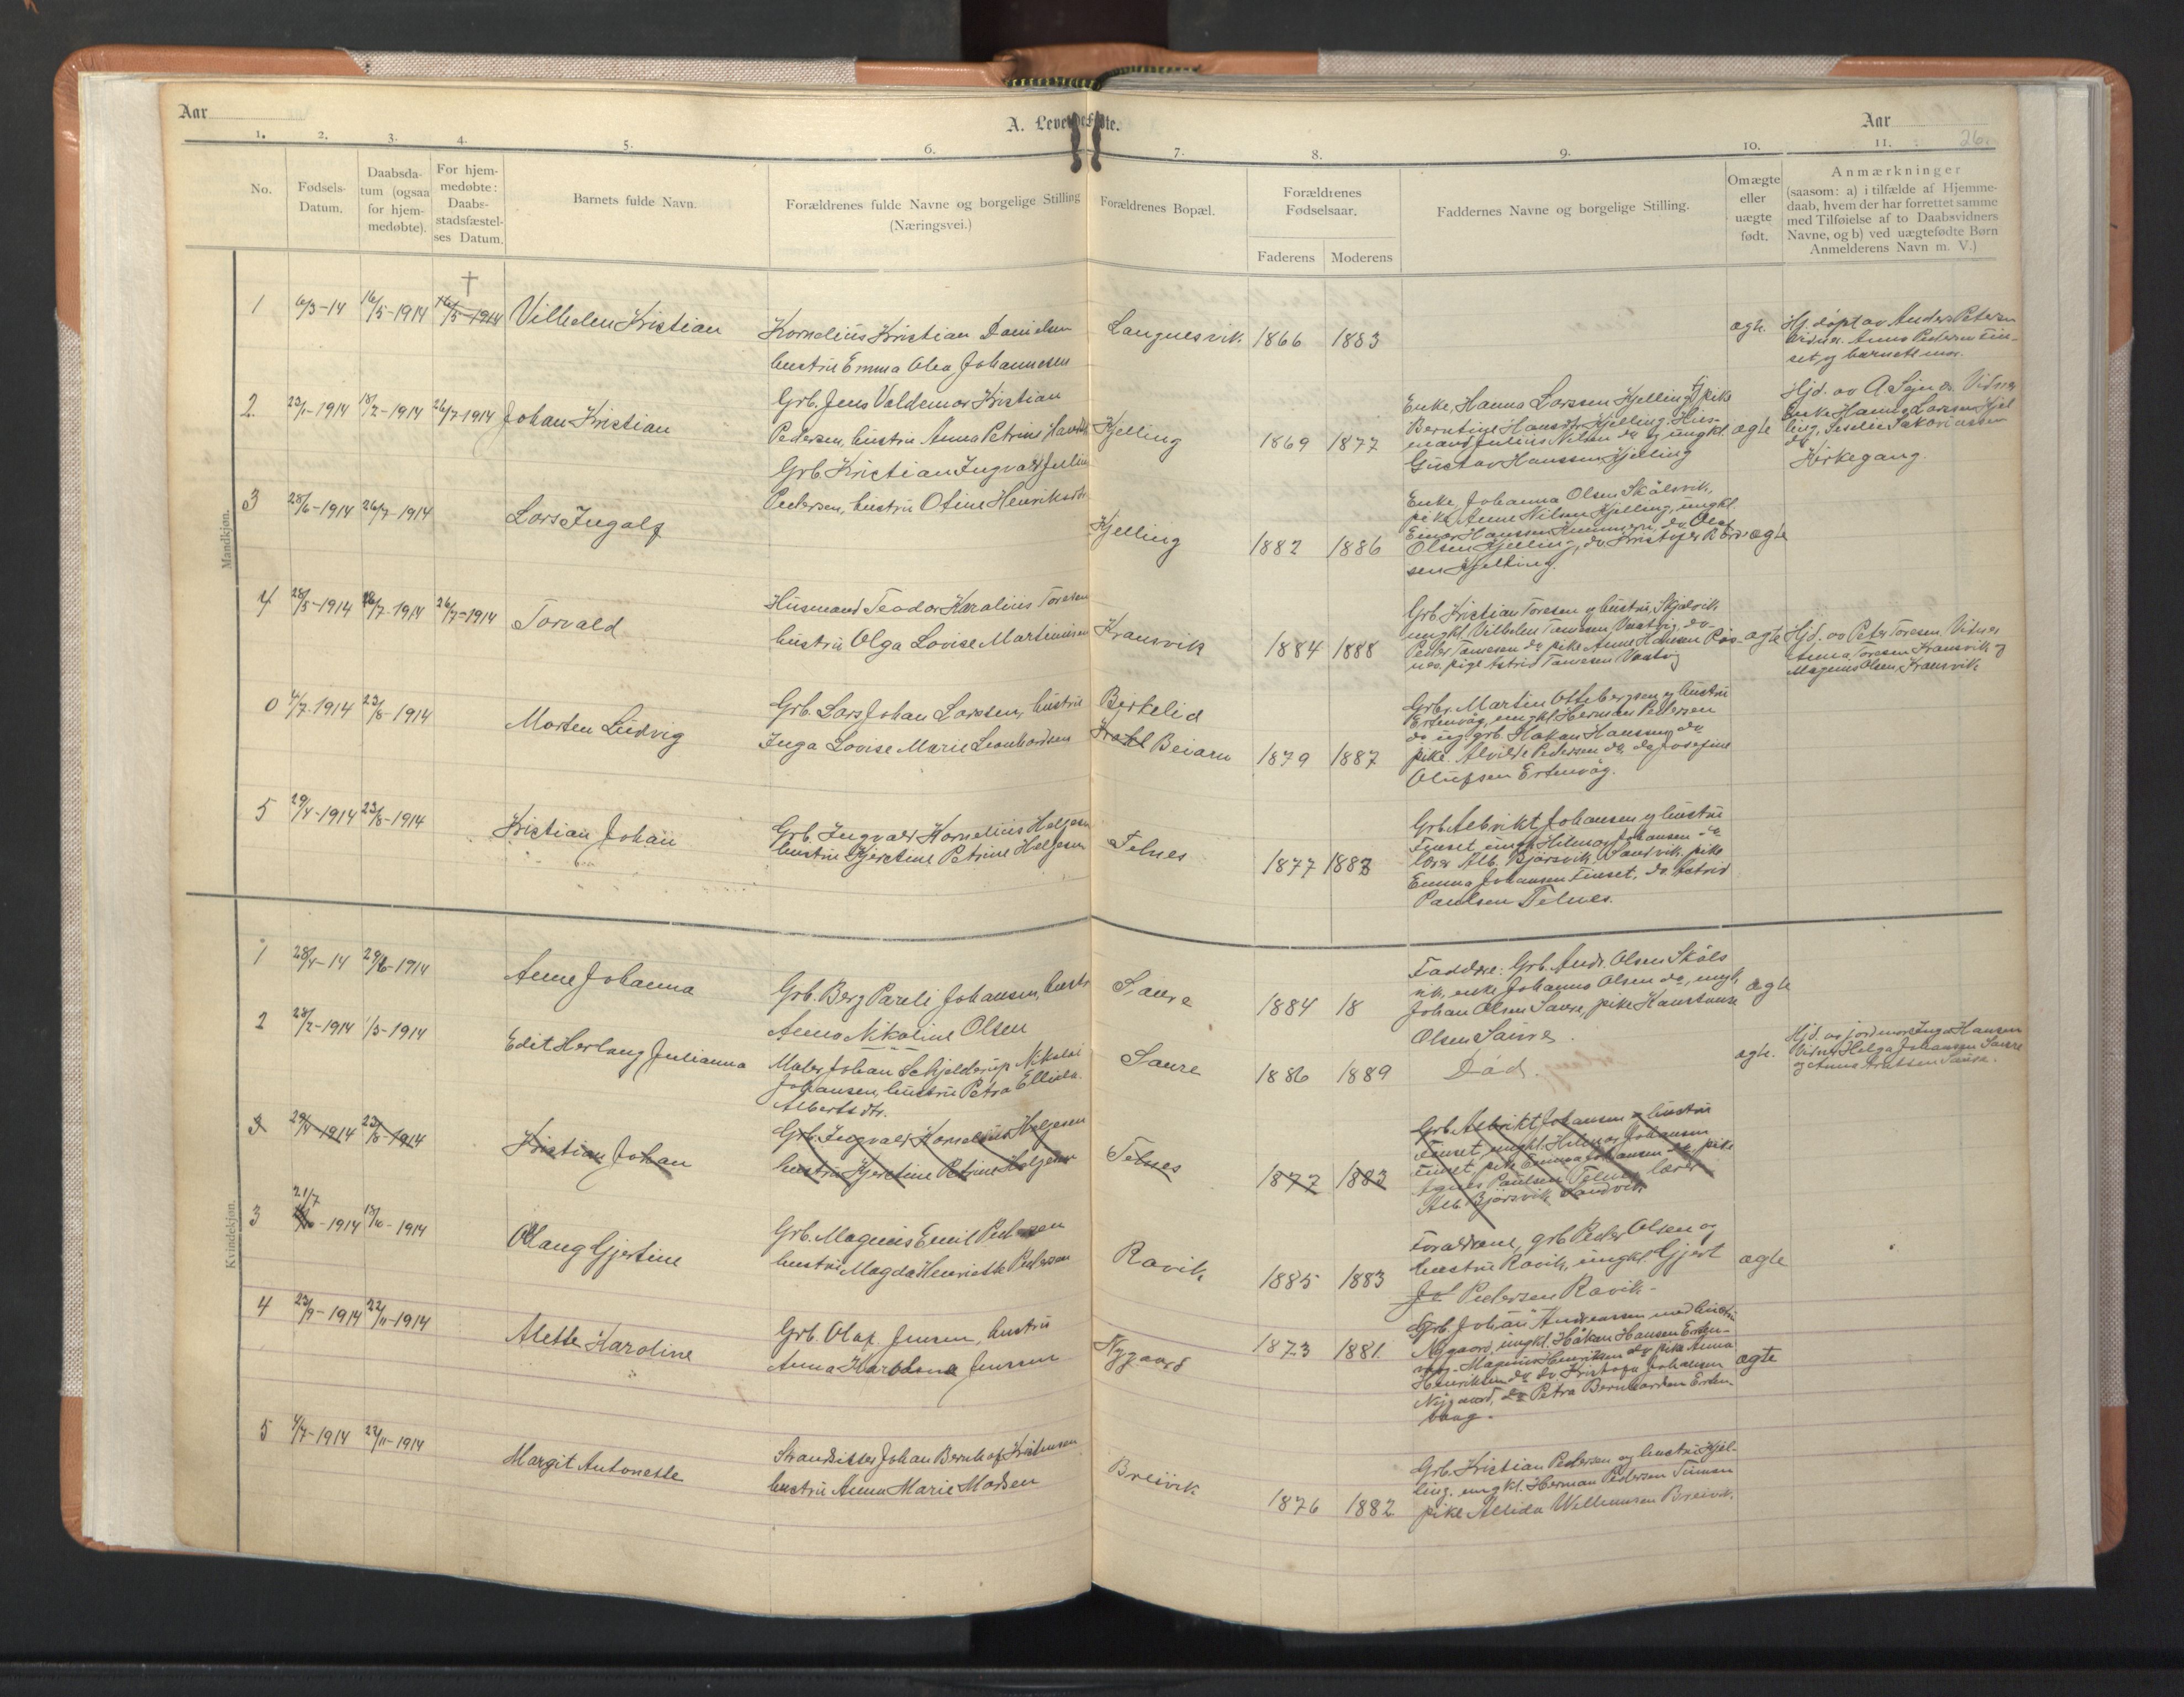 Aar
A. Levendefødte.
Aar
26
1.
2.
3.
4.
5.
6.
7.
8.
9.
10.
11.
No.
Fødsels-
Datum.
Daabsda-
tum (ogsaa
for hjem-
medøbte).
For hjem-
medøbte:
Daabs-
stadsfæstel-
ses Datum.
Barnets fulde Navn.
Forældrenes fulde Navne og borgelige Stilling
(Næringsvei.)
Forældrenes Bopæl.
Forældrenes
Fødselsaar.
Faderens
Moderens
Faddernes Navne og borgelige Stilling.
Om ægte
eller
uægte
født.
Anmærkninger
(saasom: a) i tilfælde af Hjemme-
daab, hvem der har forrettet samme
med Tilføielse af to Daabsvidners
Navne, og b) ved uægtefødte Børn
Anmelderens Navn m. V.)
Mandkjøn.
1
6/3-14
16/5-1914
16/5-1914
Vilhelm Kristian
Kornelius Kristian Danielsen
hustru Emma Olea Johannesen
Langnesvik
1866
1883
ægte
Hj. døpt av Anders Petersen
Anna Pedersen Fin-
set og barnets mor.
2.
23/1-1914
18/2-1914
26/7-1914
Johan Kristian
Grb. Jens Valdemar Kristian
Pedersen, hustru Anna Petrine
Kjelling
1869
1877
Enke, Hanna Larssen Kjelling, pike
Berntine Hansdtr Kjelling. Hus-
mand Julius Nilsen do og ungkl.
Gustav Hanssen Kjelling
ægte
Hjd. av A Vidner
Enke Hanna Larssen Kjel
ling, Sakariassen
do
Kirkegang.
3
28/6-1914
26/7-1914
Lars Ingolf
Grb. Kristian Ingvald Julius
Pedersen, hustru Otine Henriksdtr
Kjelling
1882
1886
Enke Johanna Olsen Skålsvik,
pike Anne Nilsen Kjelling, ungkl.
Einar Hanssen do Olaf
Olsen Kjelling, do Kristofer
sen Kjelling.
ægte
4
28/5-1914
26/7-1914
26/7-1914
Torvald
Husmand Teodor Karolius Toresen
hustru Olga Lovise Martinusen
Kransvik
1884
1888
Grb Kristian Toresen og hustru, Skjelvik
ungkl. Vilhelm do
Peder do pike Anna Hansen
nes, pige Astrid
ægte
Hjd. av Peter Toresen. Vidner
Anna Toresen Kransvik og
Magnus Olsen, Kransvik
0
4/7-1914
23/8-1914
Morten Ludvig
Grb. Lars Johan Larssen, hustru
Inga Lovise Marie Leonhardsen
Birkelid
Beiarn
1879
1887
Grbr. Martin og hustru
Ertenvåg, ungkl. Herman Pedersen
do ug. grb. Håkan Hanssen do
pike. Alvilde Pedersen do, do Josefine
Olufsen Ertenvåg.
5
29/4-1914
23/8-1914
Kristian Johan
Grb. Ingvald Kornelius Helgesen
hustru Hjertine Petrine Helgesen
Felnes
1877
1883
Grb Albrikt Johansen og hustru
Finset, ungk Hilmar Johansen do
lærer Alb. Bjørsvik Sandvik. pike
Emma Johansen Finset, do Astrid
Paulsen Felnes.
Kvindekjøn.
1
28/4-14
29/6-1914
Anne Johanna
Grb. Berg Pareli Johansen, hustr
Anna Nikoline Olsen
Saura
1884
18
Faddere: Grb. Andr. Olsen Skåls
vik, enke Johanna Olsen do, ungk.
Johan Olsen Saura, pike
Olsen Saura.
ægte
2
28/2-1914
1/5-1914
Edit Herlaug Julianna
Maler Johan Schjelderup Nikolai
Johansen, hustru Petra Ellida
Albertsdtr.
Saura
1886
1889
Død.
ægte.
Hjd. av jordmor Inga Hansen
Vidner Helga Johansen Saura
og Anna Saura.
3
29/4-1914
23/8-1914
Kristian Johan
Grb. Ingvald Kornelius Helgesen
hustru Hjertine Petrine Helgesen
Felnes
1877
1883
Grb. Albrikt Johansen og hustru
Finset, ungkl. Hilmar Johansen
Finset, pike Emma Johansen do, pike
Agnes Paulsen Felnes, lærer
Alb. Bjørsvik Sandvik
3
21/7
-1914
-1914
Olaug Gjertine
Grb. Magnus Emil Pedersen
hustru Magda Henriette Pedersen
Ravik
1885
1883
Forældrene, grb Peder Olsen og
hustru Ravik, ungkl. Gjert
Pedersen Ravik.
ægte
4
23/9-1914
22/11-1914
Alette Karoline
Grb. Olaf Jensen, hustru
Anna Jenssen
Nygaard
1873
1881
Grb. Johan Andreassen med hustru
Nygaard, ungkl. Håkan Hansen Erten-
vag, Magnus Henriksen do pike Anna
Henriksen do do Kristofa Johansen
Nygaard, do Petra Bernhardsen Erten-
vaag.
ægte
5
4/7-1914
22/11-1914
Margit Antonette
Strandsitter Johan Bernhof Kristensen
hustru Anna Marie Madsen
Breivik
1876
1882
Grb. Kristian Pedersen og hustru Kjel-
ling. ungkl. Herman Pedersen
pike Allida Willumsen Breivik.